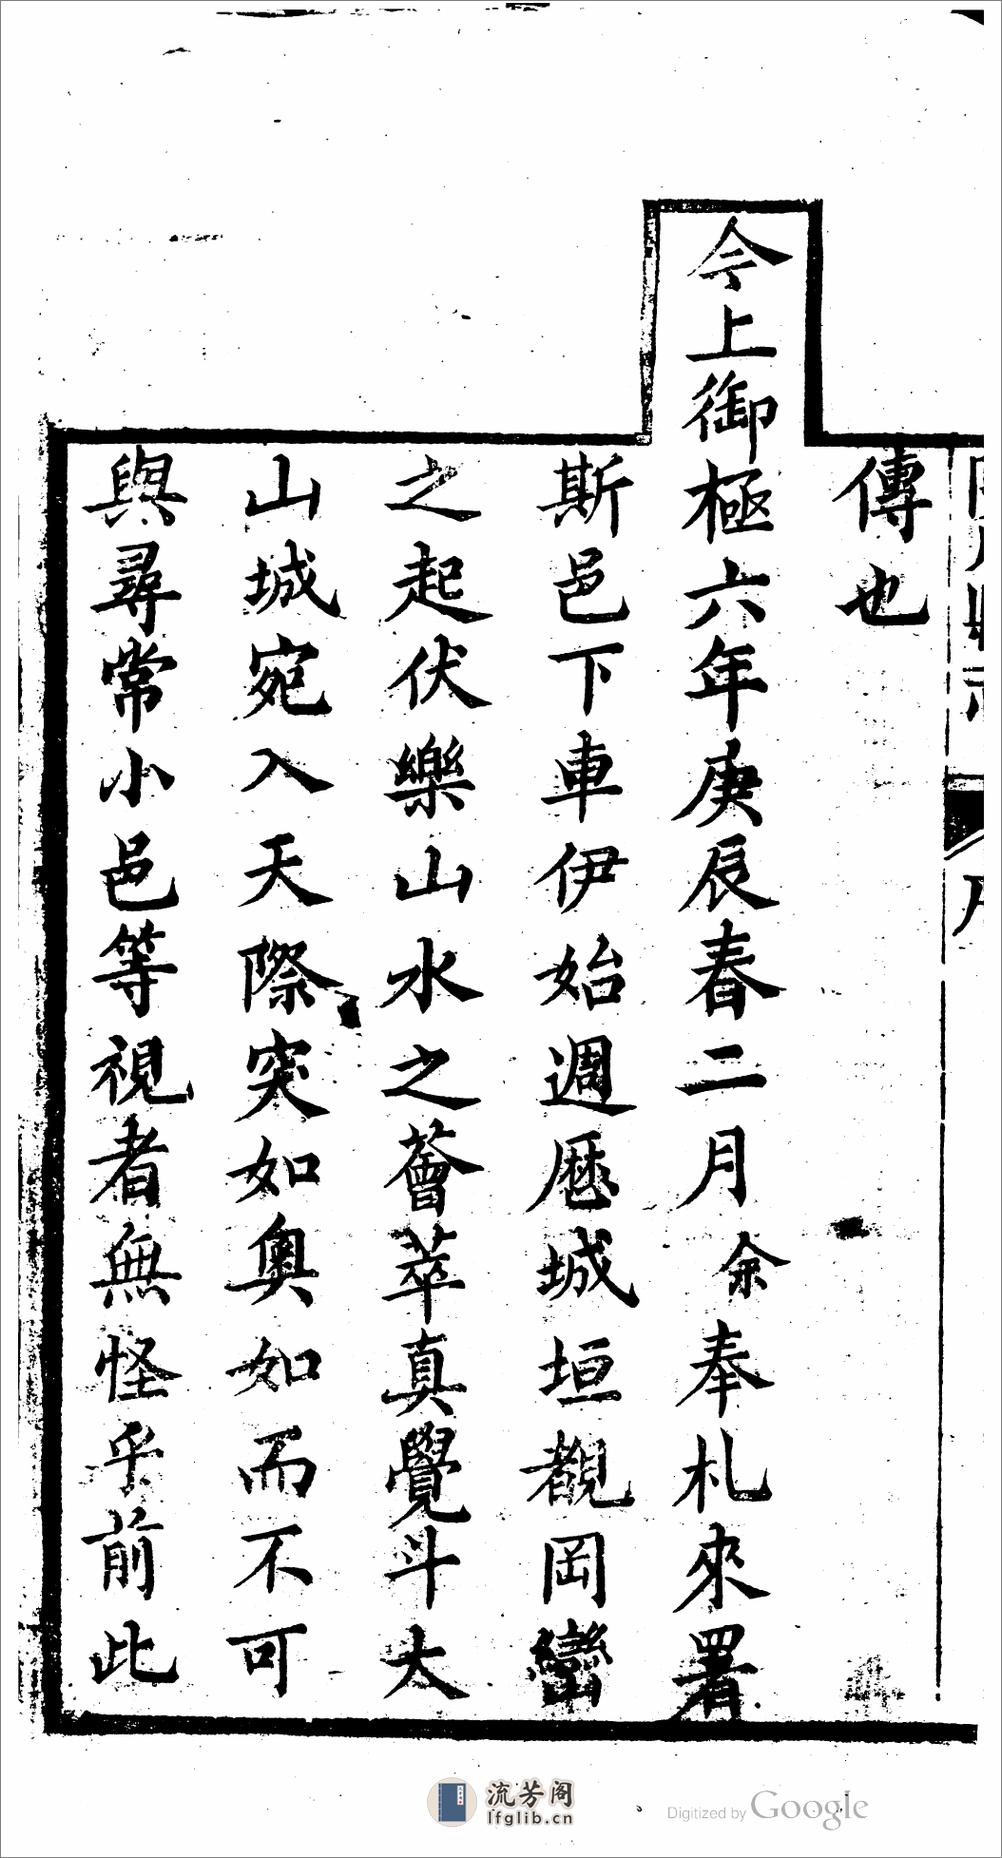 傳也
今上御極六年庚辰春二月余奉札來署
斯邑下車伊始週厯城垣觀岡巒
之起伏樂山水之薈萃真覺斗大
山城宛入天際突如奥如而不可
與尋常小邑等視者無怪乎前此
流芳阁
lfglib.cn
Digitized by Google